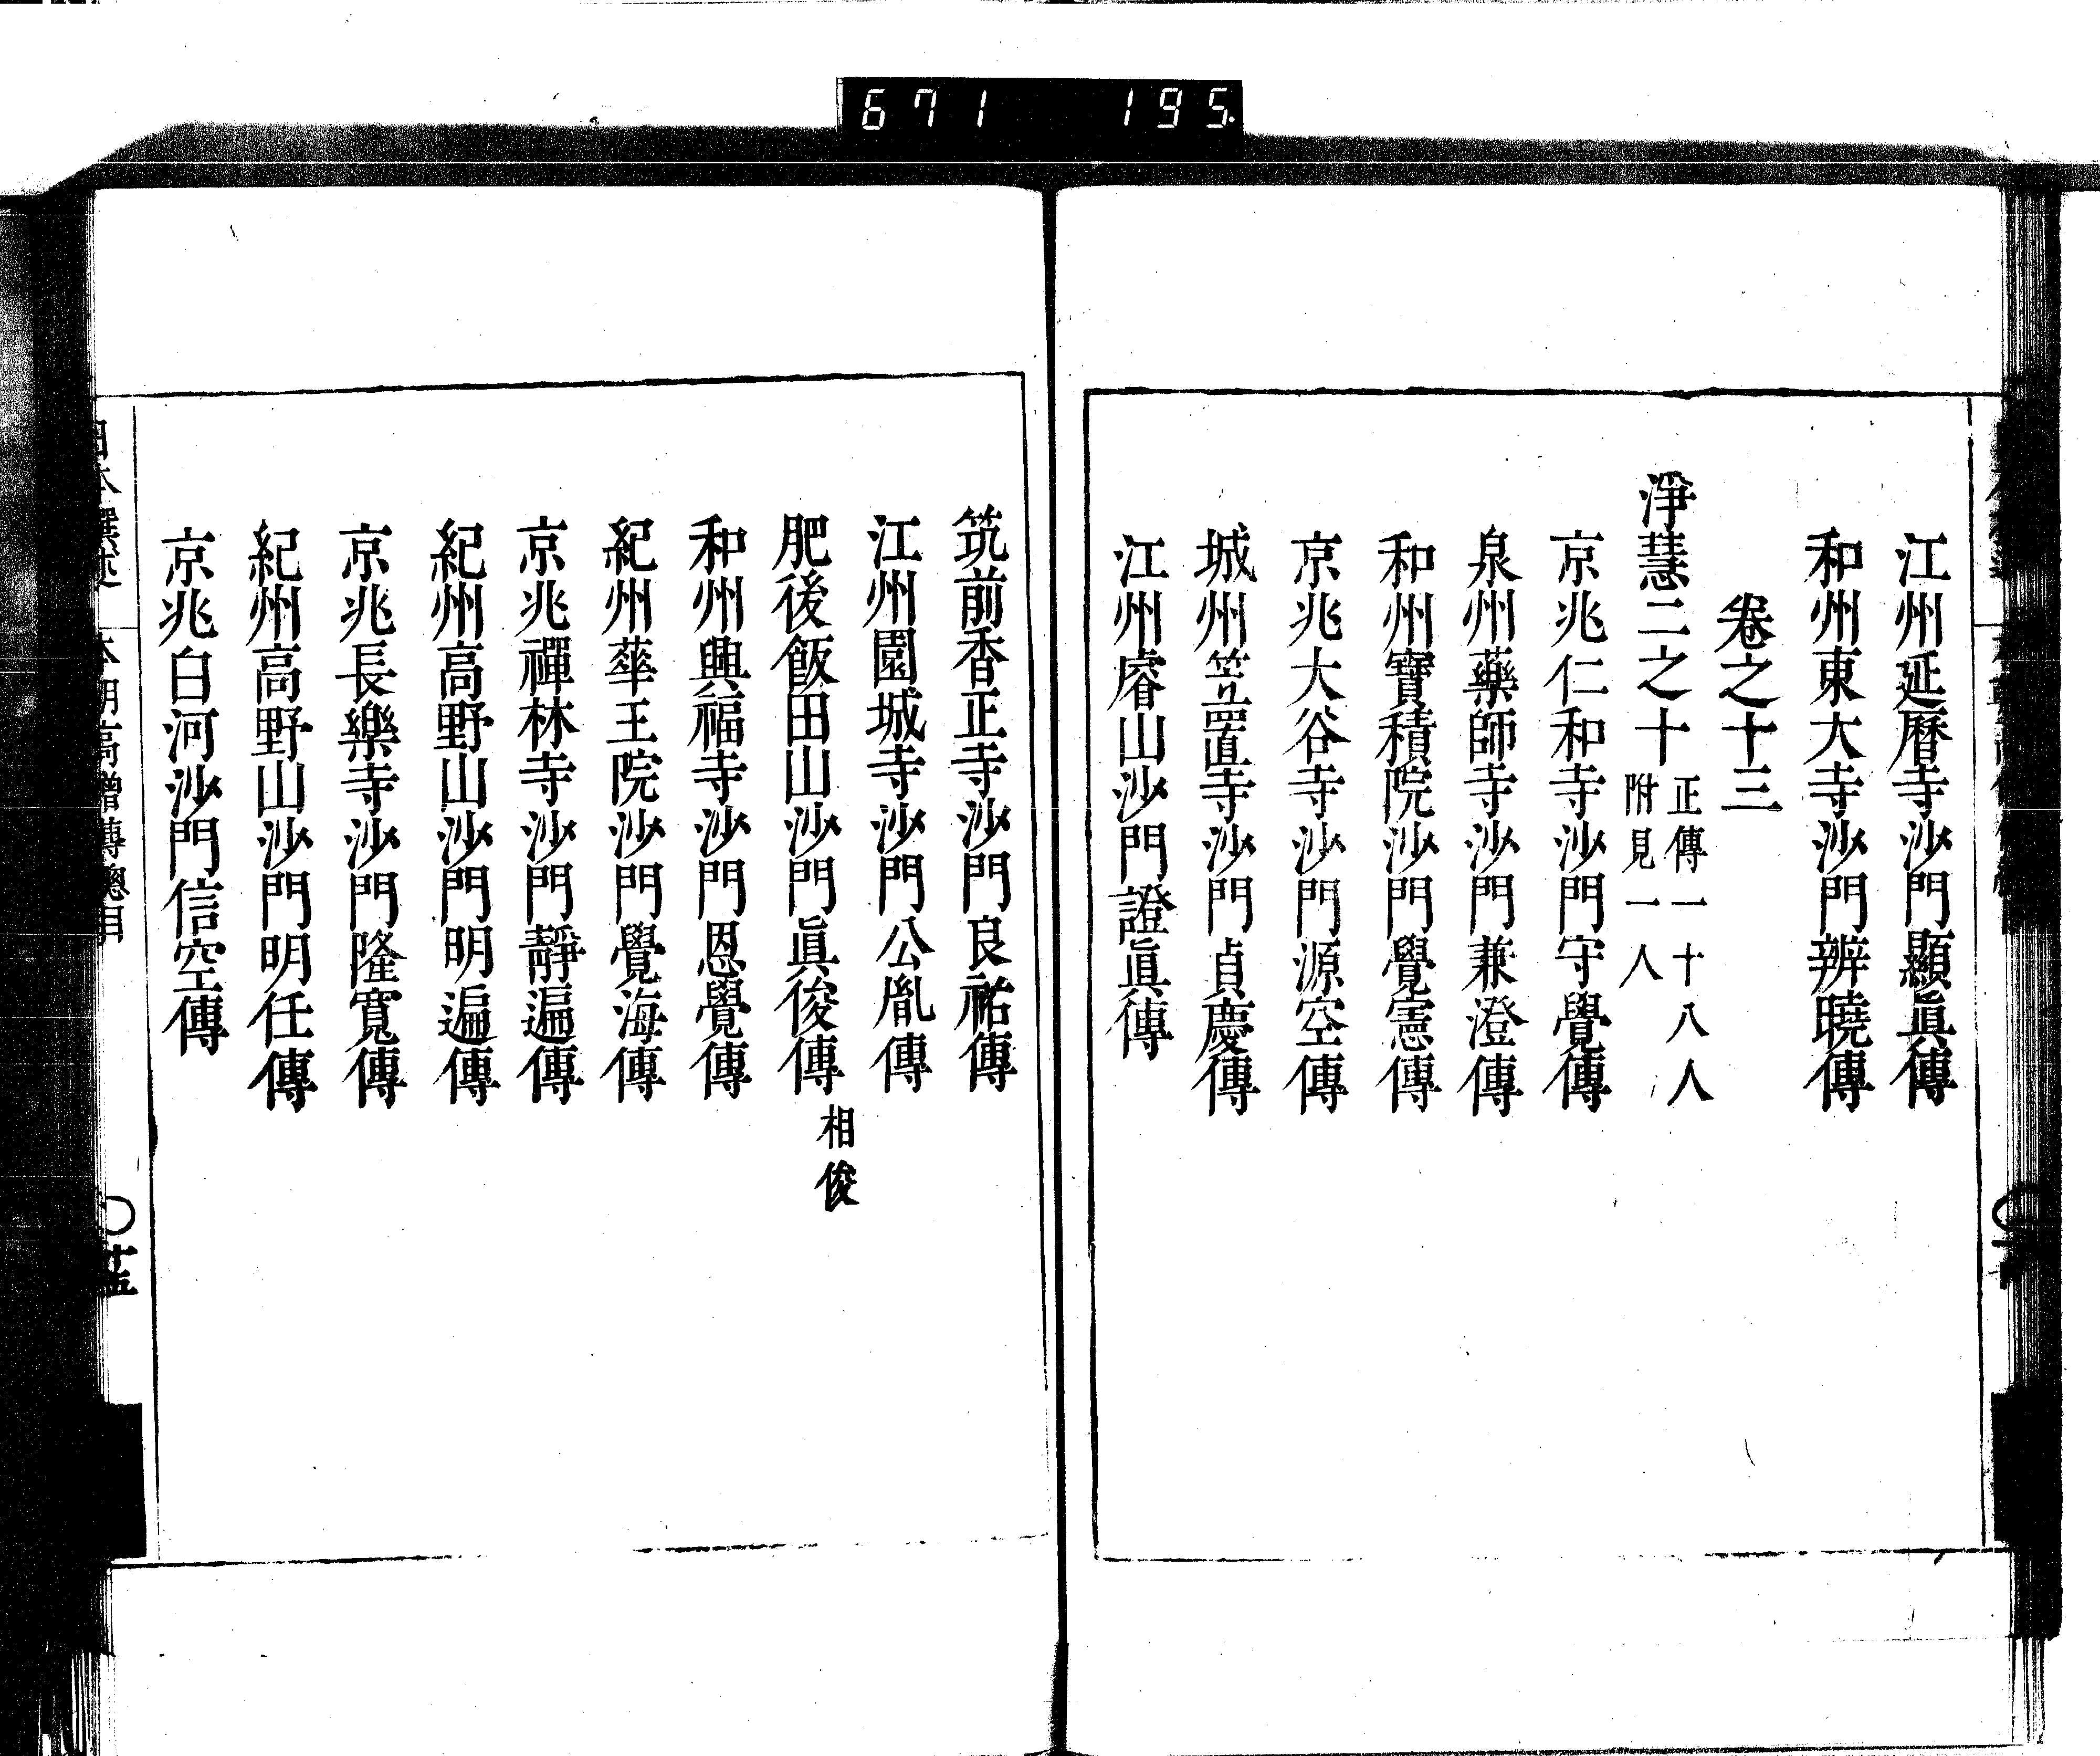 671 195
江州延曆寺沙門顯眞傳
和州東大寺沙門辨曉傳
卷之十三
淨慧二之十
正傳一十八人
附見一人
京兆仁和寺沙門守覺傳
泉州藥師寺沙門兼澄傳
和州寶積院沙門覺憲傳
京兆大谷寺沙門源空傳
城州笠置寺沙門貞慶傳
江州睿山沙門證眞傳
筑前香正寺沙門良祐傳
江州園城寺沙門公胤傳
肥後飯田山沙門眞俊傳
相俊
和州興福寺沙門恩覺傳
紀州華王院沙門覺海傳
京兆禪林寺沙門靜遍傳
紀州高野山沙門明遍傳
京兆長樂寺沙門隆寬傳
紀州高野山沙門明任傳
京兆白河沙門信空傳
日本撰述 本朝高僧傳總目 〇廿五